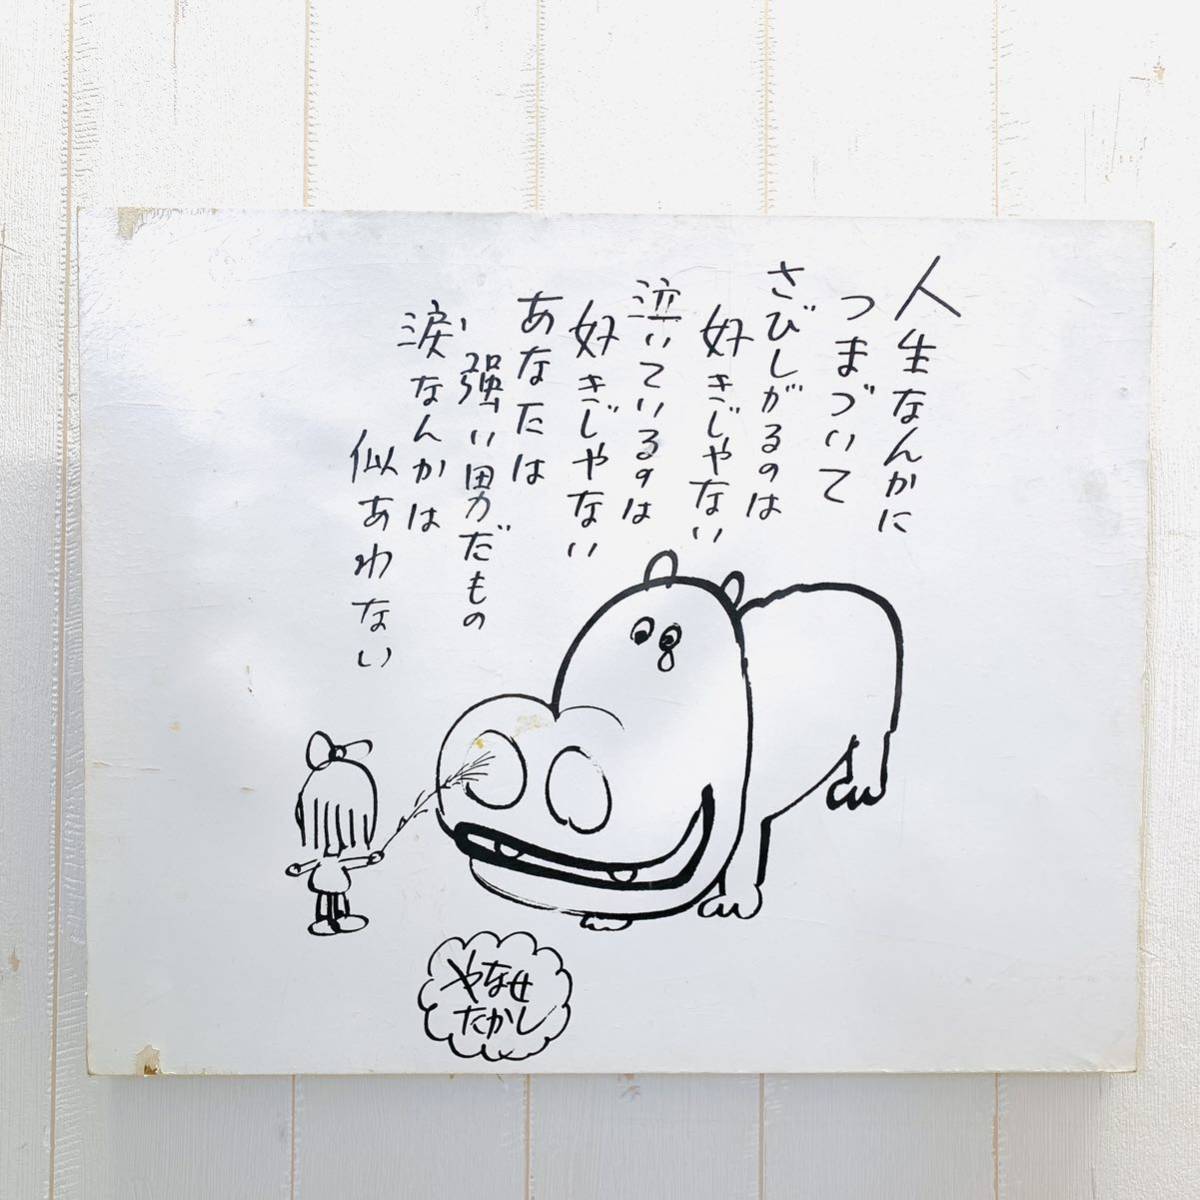 人生なんかに
つまづいて
さびしがるのは
好きじゃない
泣いているのは
好きじゃない
あなたは
強い男だもの
涙なんかは
似あわない
やなせ
たかし